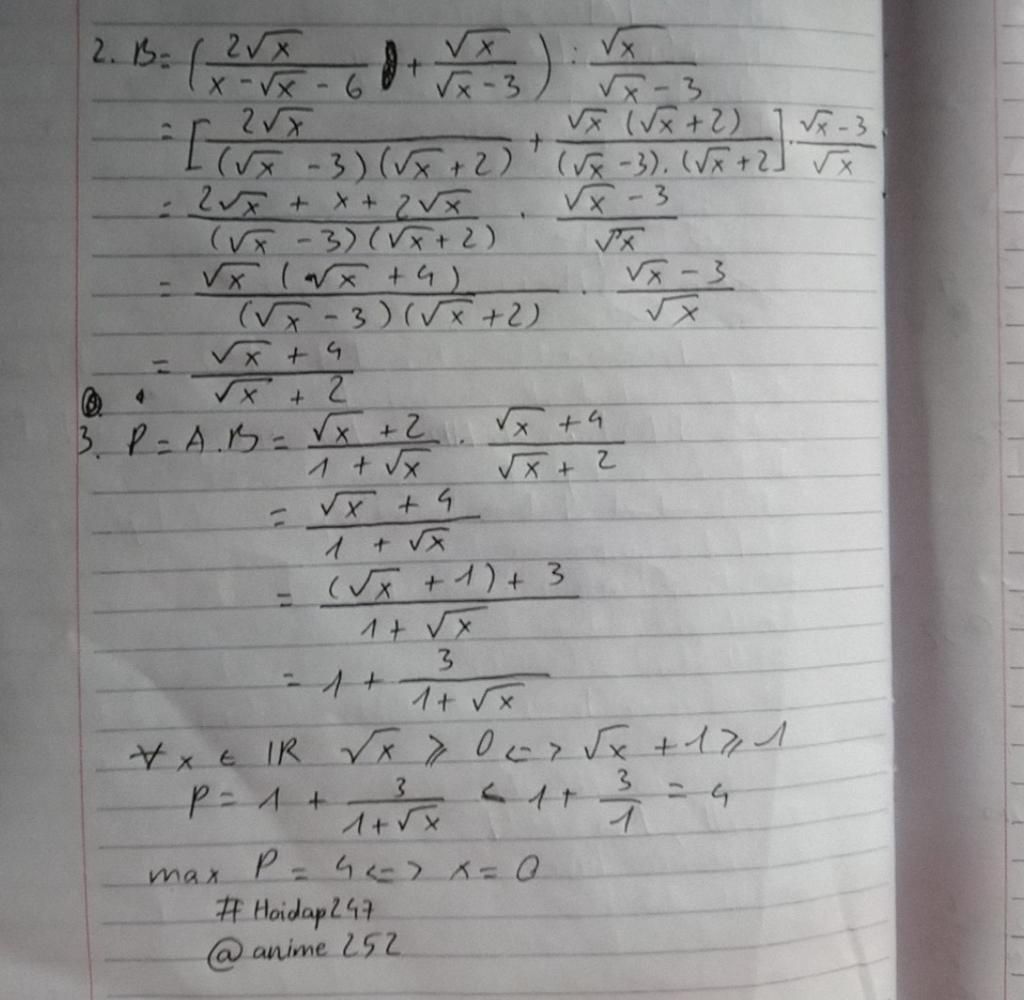 2. B = (2√x / (x - √x - 6) + √x / (√x - 3)) : √x / (√x - 3)
= [2√x / ((√x - 3)(√x + 2)) + √x (√x + 2) / ((√x - 3).(√x + 2)] . (√x - 3) / √x
= (2√x + x + 2√x) / ((√x - 3)(√x + 2)) . (√x - 3) / √x
= √x (√x + 4) / ((√x - 3)(√x + 2)) . (√x - 3) / √x
= (√x + 4) / (√x + 2)
3. P = A.B = (√x + 2) / (1 + √x) . (√x + 4) / (√x + 2)
= (√x + 4) / (1 + √x)
= ((√x + 1) + 3) / (1 + √x)
= 1 + 3 / (1 + √x)
∀x ∈ IR √x ⩾ 0 <=> √x + 1 ⩾ 1
P = 1 + 3 / (1 + √x) < 1 + 3/1 = 4
max P = 4 <=> x = 0
# Hoidap247
@anime 252